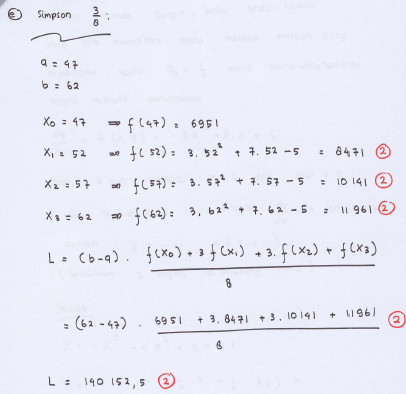 e Simpson 3/8 :
a = 47
b = 62
X0 = 47 ⇒ f(47) = 6951
X1 = 52 ⇒ f(52) = 3. 52² + 7. 52 - 5 = 8471 2
X2 = 57 ⇒ f(57) = 3. 57² + 7. 57 - 5 = 10 141 2
X3 = 62 ⇒ f(62) = 3. 62² + 7. 62 - 5 = 11 961 2
L = (b-a) . f(X0) + 3 f(X1) + 3. f(X2) + f(X3)
8
= (62 - 47) . 6951 + 3. 8471 + 3. 10141 + 11961 2
8
L = 140 152,5 2